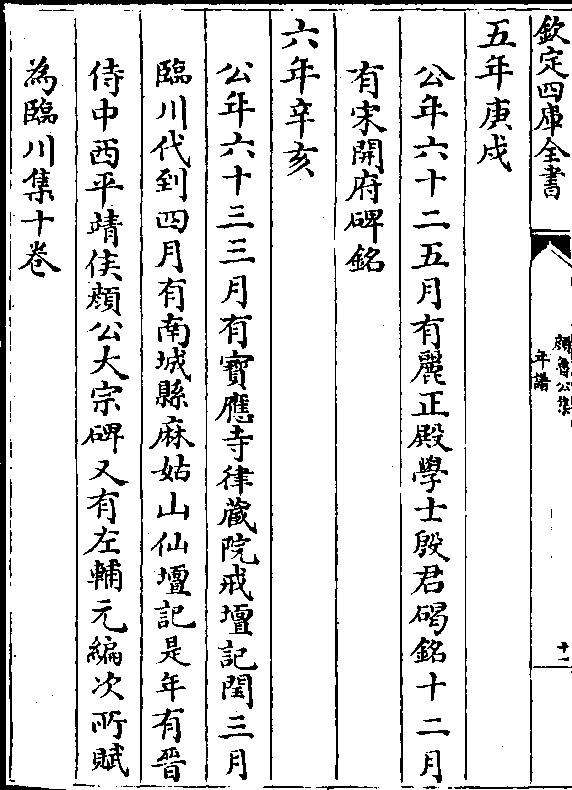 欽定四庫全書
顏魯公集
年譜
十一
五年庚戌
公年六十二五月有麗正殿學士殷君碣銘十二月
有宋開府碑銘
六年辛亥
公年六十三三月有寶應寺律藏院戒壇記閏三月
臨川代到四月有南城縣麻姑山仙壇記是年有晉
侍中西平靖侯顏公大宗碑又有左輔元編次所賦
為臨川集十卷